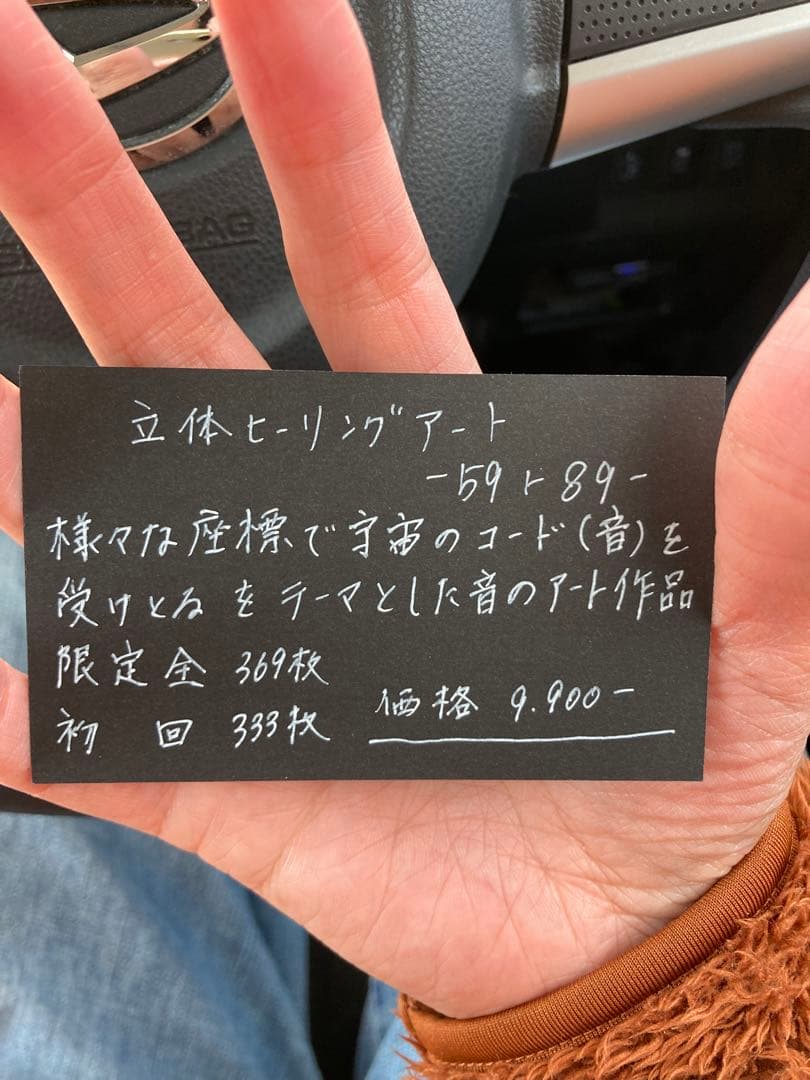 AG
立体ヒーリングアート
-59ト89-
様々な座標で宇宙のコード(音)を
受けとるをテーマとした音のアート作品
限定全 369枚
初 回 333枚 価格 9.900-